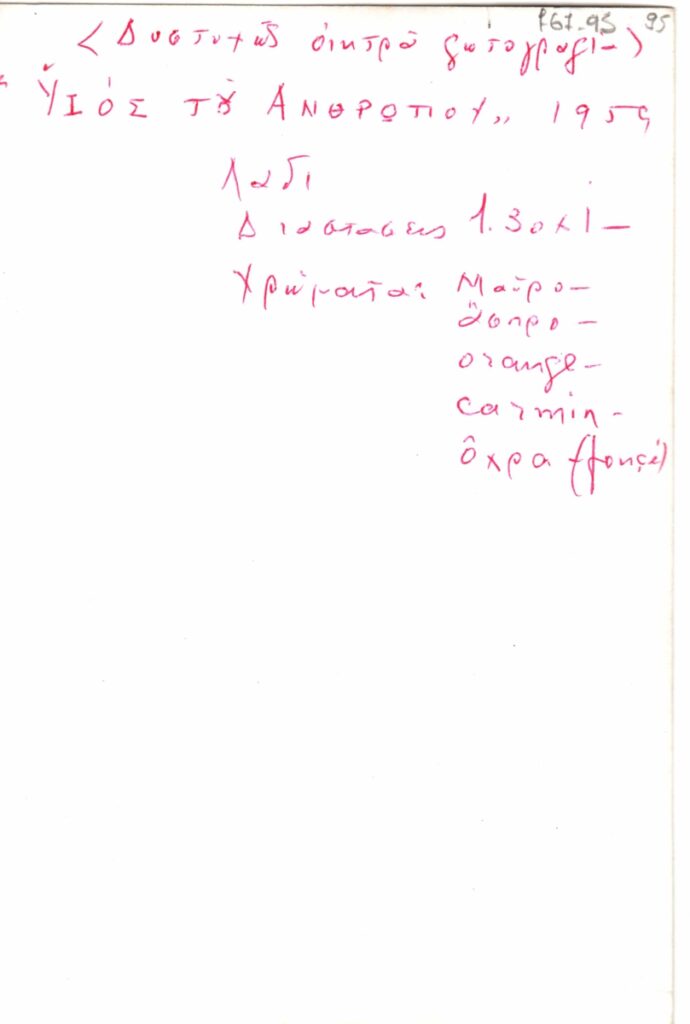 P67-95 95
(Δυστυχῶς οἰκτρὰ φωτογραφί-)
"ὙΙΌΣ ΤΟΥ͂ ἈΝΘΡΏΠΟΥ,, 1959
Λάδι
Διαστάσεις 1.30x1-
Χρώματα: Μαῦρο-
ἄσπρο-
orange-
carmin-
ὄχρα (foncé)